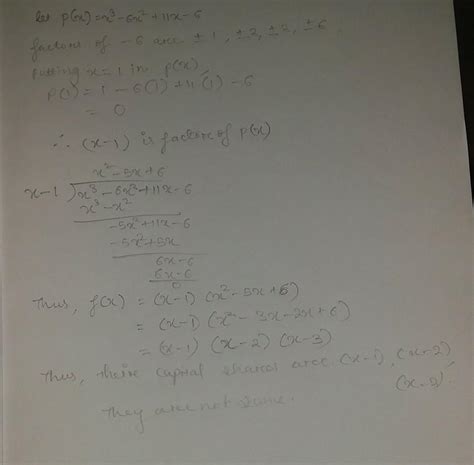 let p(x) = x³ - 6x² + 11x - 6
factors of -6 are ± 1, ± 2, ± 2, ± 6
putting x = 1 in p(x),
p(1) = 1 - 6(1) + 11(1) - 6
= 0
∴ (x-1) is factor of p(x)
x² - 5x + 6
x-1 ) x³ - 6x² + 11x - 6
x³ - x²
-5x² + 11x - 6
-5x² + 5x
6x - 6
6x - 6
0
Thus, f(x) = (x-1) (x² - 5x + 6)
= (x-1) (x² - 3x - 2x + 6)
= (x-1) (x-2) (x-3)
Thus, their capital shares are (x-1), (x-2)
(x-3)
They are not same.